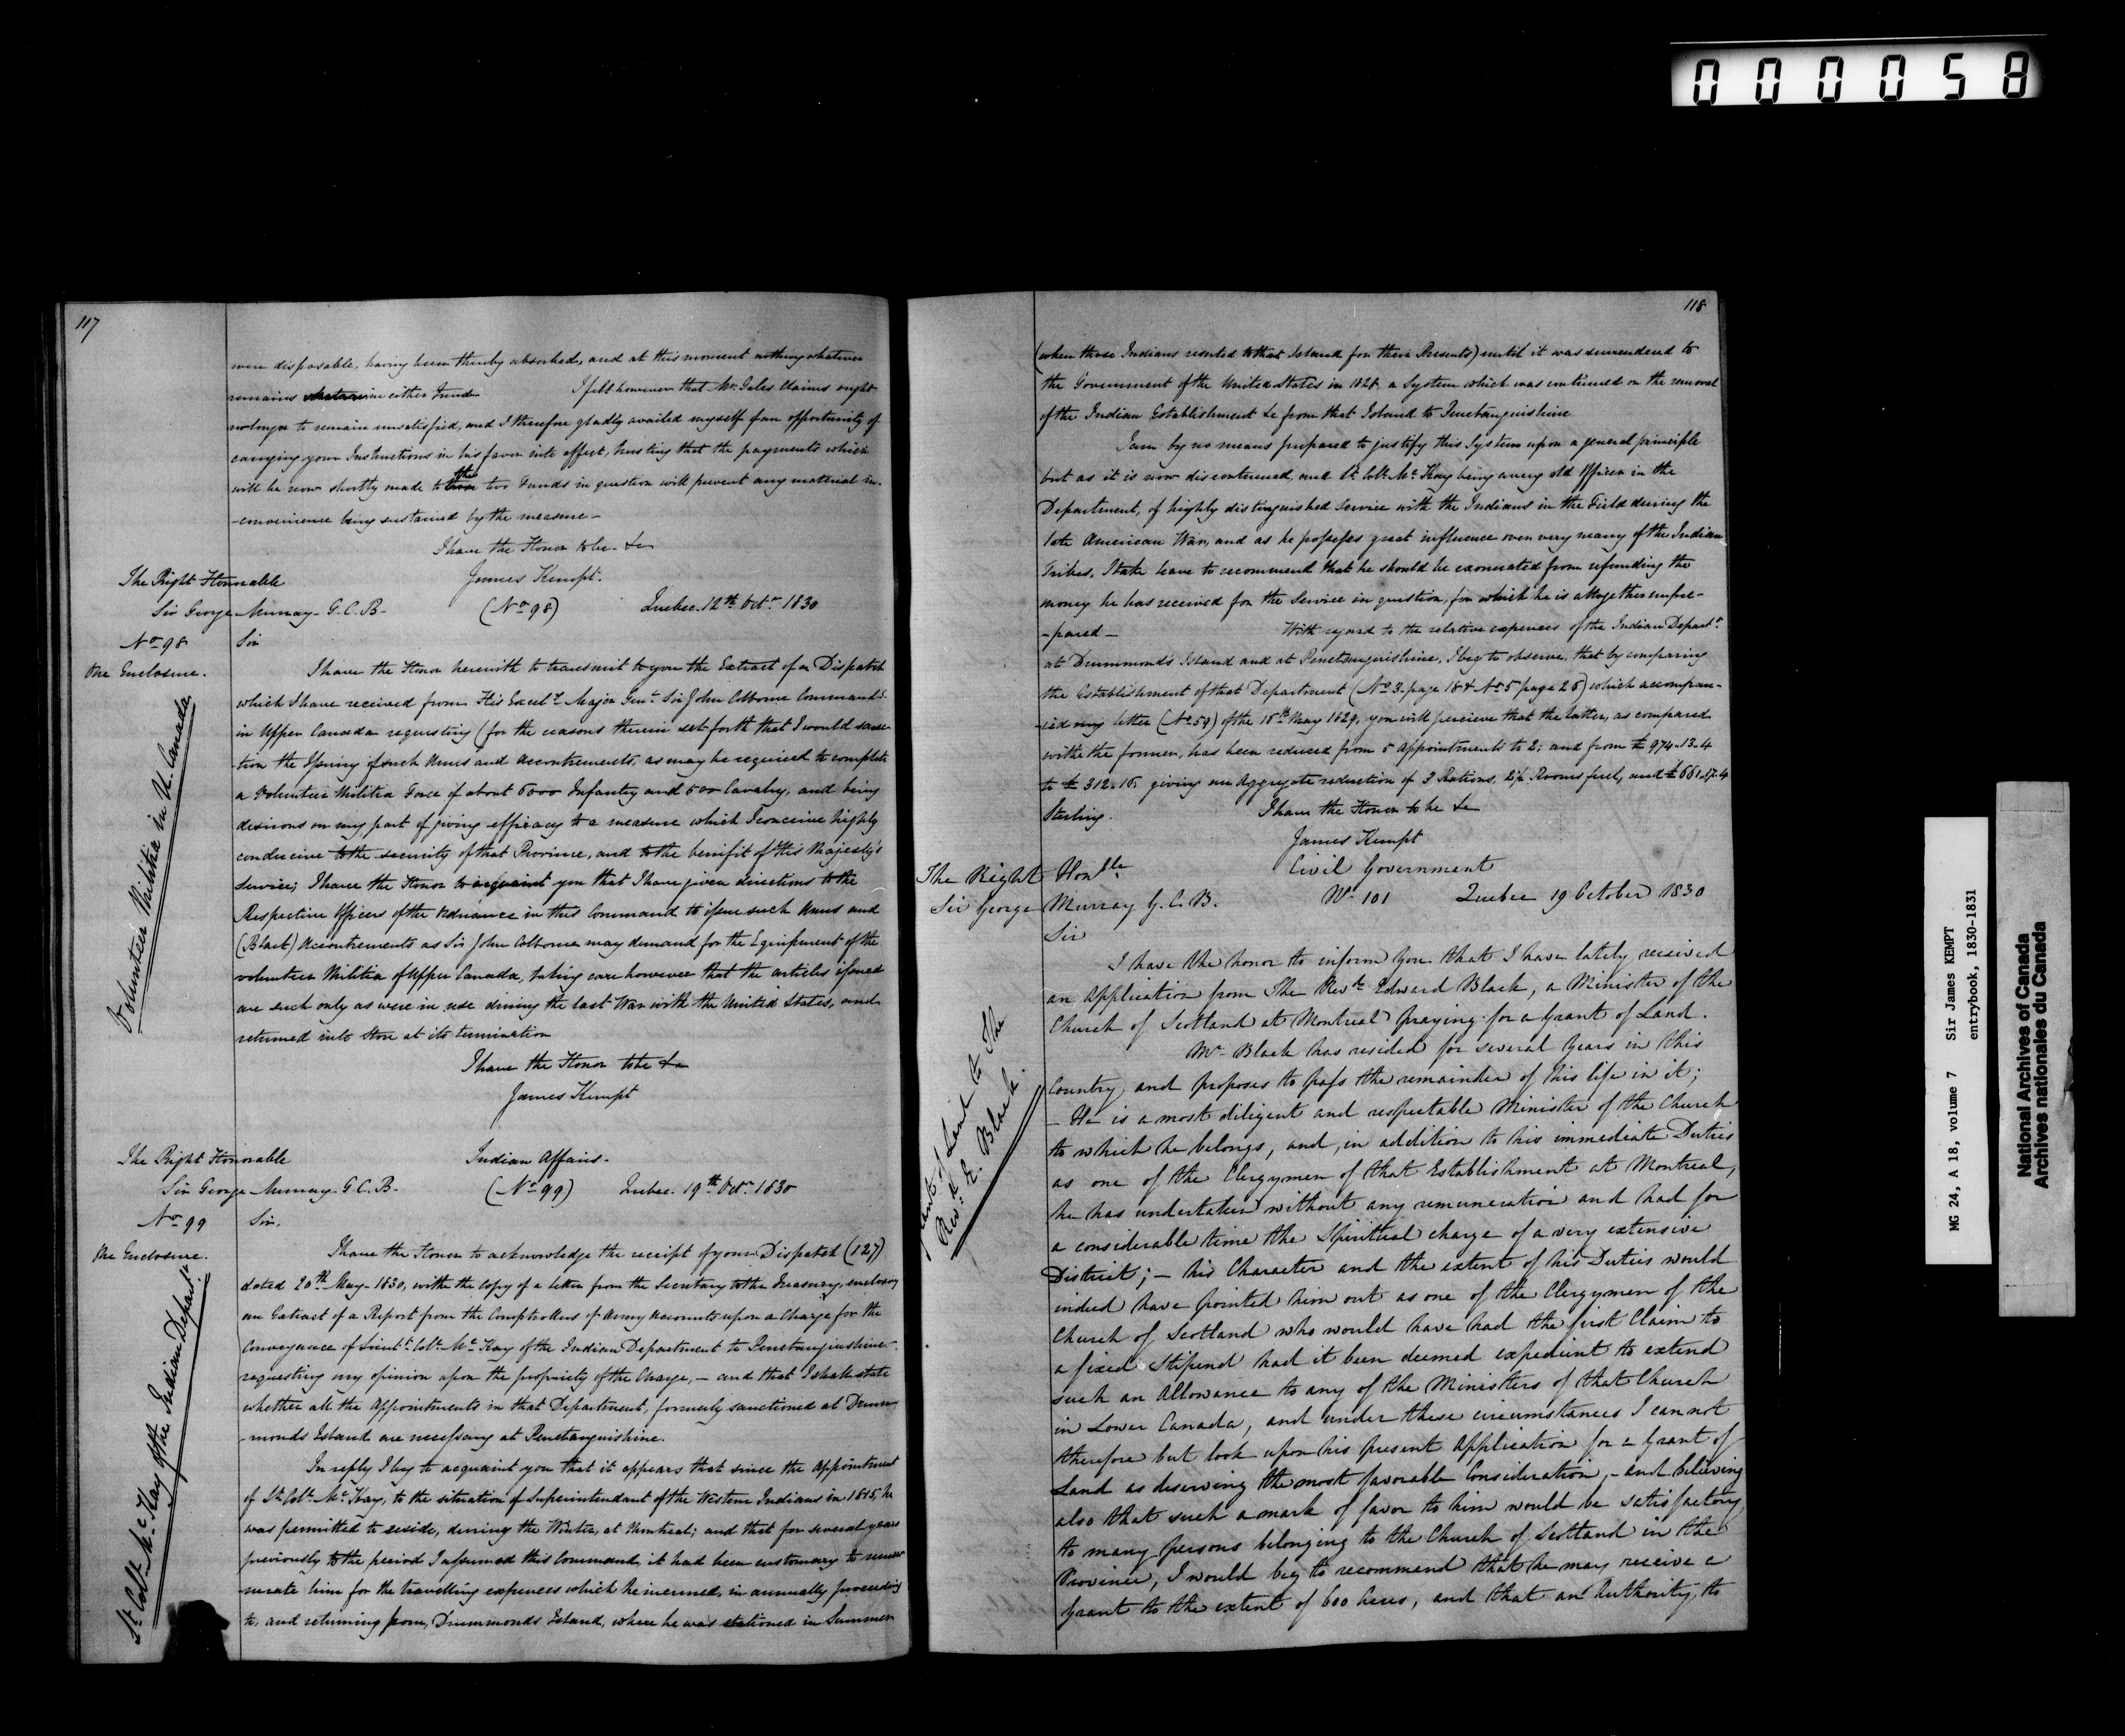 000058
117
were disposable, having been thereby absorbed, and at this moment nothing whatever
remains in either Fund. I felt however that Mr. Gales Claims ought
no longer to remain unsatisfied, and I therefore gladly availed myself of an opportunity of
carrying your Instructions in his favor into effect, trusting that the payments which
will be now shortly made to the two Funds in question will prevent any material in-
-convenience being sustained by the measure -
I have the Honor to be &c
James Kempt.
The Right Honorable
Sir George Murray G.C.B. (No 98) Quebec 12th Octr 1830
No 98 Sir
One Enclosure.
Volunteer Militia in U. Canada
I have the Honor herewith to transmit to you the Extract of a Dispatch
which I have received from His Excelly Major Genl Sir John Colborne Commandg
in Upper Canada requesting (for the reasons therein set forth that I would sanc-
-tion the Issuing of such Arms and Accoutrements, as may be required to complete
a Volunteer Militia Force of about 5000 Infantry and 500 Cavalry, and being
desirous on my part of giving efficacy to a measure which I conceive highly
conducive to the security of that Province, and to the benifit of His Majesty's
Service; I have the Honor to acquaint you that I have given directions to the
Respective Officers of the Ordnance in this Command to issue such Arms and
(Black) Accoutrements as Sir John Colborne may demand for the Equipment of the
volunteer Militia of Upper Canada, taking care however that the articles issued
are such only as were in use during the last War with the United States, and
returned into Store at its termination
I have the Honor to be &c
James Kempt
The Right Honorable Indian Affairs.
Sir George Murray G.C.B. (No 99) Quebec. 19th Octr 1830
No 99 Sir,
One Enclosure.
Lt Coll Mc Kay of the Indian Departt
I have the Honor to acknowledge the receipt of your Dispatch (127)
dated 20th May 1830, with the Copy of a letter from the Secretary to the Treasury, enclosing
an Extract of a Report from the Comptrollers of Army Accounts upon a Charge for the
Conveyance of Lieut Coll Mc Kay of the Indian Department to Penetanguishine -
requesting my opinion upon the propriety of the Charge, - and that I shall state
whether all the Appointments in that Department, formerly sanctioned at Drum-
-monds Island are necessary at Penetanguishine.
In reply I beg to acquaint you that it appears that since the Appointment
of Lt Coll Mc Kay, to the situation of Superintendant of the Western Indians in 1815, he
was permitted to reside, during the Winter, at Montreal; and that for several years
previously to the period I assumed this Command, it had been customary to remu-
-nerate him for the travelling expences which he incurred, in annually proceeding
to, and returning from, Drummonds Island, where he was stationed in Summer
118
(when those Indians resorted to that Island for their Presents) until it was surrendered to
the Government of the United States in 1828. a System which was continued on the removal
of the Indian Establishment &c from that Island to Penetanguishine.
I am by no means prepared to justify this System upon a general principle
but as it is now discontinued, and Lt Coll Mc Kay being a very old Officer in the
Department, of highly distinguished Service with the Indians in the Field during the
late American War, and as he possesses great influence over very many of the Indian
Tribes, I take leave to recommend that he should be exonerated from refunding the
money he has received for the Service in question, for which he is altogether unpre-
-pared - With regard to the relative expences of the Indian Departt
at Drummonds Island and at Penetanguishine, I beg to observe, that by comparing
the Establishment of that Department (No 3. page 18 & No 5 page 26) which accompan-
-ied my letter (No 59) of the 15th May 1829, you will percieve that the latter, as compared
with the former, has been reduced from 5 Appointments to 2; and from £974.13.4
to £312.16. giving an Aggregate reduction of 3 Rations, 2½ Rooms fuel, and £661.17.4
Sterling. I have the Honor to be &c
James Kempt
Civil Government
The Right Honble
Sir George Murray G.C.B. No 101 Quebec 19 October 1830
Sir
Grant of Land to The
Revd E. Black.
I have the honor to inform you that I have lately received
an application from The Revd Edward Black, a Minister of the
Church of Scotland at Montreal praying for a Grant of Land.
Mr Black has resided for several Years in this
Country, and proposes to pass the remainder of his life in it;
- He is a most diligent and respectable Minister of the Church
to which he belongs, and, in addition to his immediate Duties
as one of the Clergymen of that Establishment at Montreal,
he has undertaken without any remuneration and had for
a considerable time the Spiritual charge of a very extensive
District; - his Character and the extent of his Duties would
indeed have pointed him out as one of the Clergymen of the
Church of Scotland who would have had the first Claim to
a fixed Stipend had it been deemed expedient to extend
such an Allowance to any of the Ministers of that Church
in Lower Canada, and under these circumstances I cannot
therefore but look upon his present Application for a Grant of
Land as deserving the most favorable Consideration, - and believing
also that such a mark of favor to him would be satisfactory
to many persons belonging to the Church of Scotland in the
Province, I would beg to recommend that he may receive a
Grant to the extent of 600 Acres, and that an Authority to
MG 24, A 18, volume 7 Sir James KEMPT
entrybook, 1830-1831
National Archives of Canada
Archives nationales du Canada